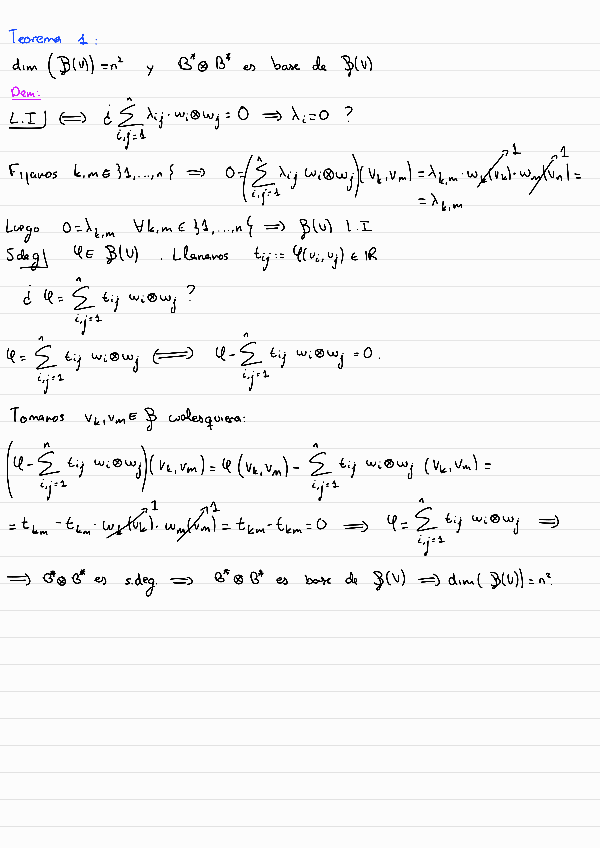 Teorema 1:
dim (B(V)) = n² y B* ⊗ B* es base de B(V)
Dem:
L.I ⟺ ¿ ∑_{i,j=1}^{n} λij · wi⊗wj = 0 ⟹ λi = 0 ?
Fijamos k,m ∈ {1,...,n} ⟹ 0 = (∑_{i,j=1}^{n} λij wi⊗wj)(vk, vm) = λk,m · wk(vk)¹ · wm(vn)¹ =
= λk,m
Luego 0 = λk,m ∀k,m ∈ {1,...,n} ⟹ B(V) l.I
S.deg| φ ∈ B(V) . Llamamos tij := φ(vi, vj) ∈ ℝ
¿ φ = ∑_{i,j=1}^{n} tij wi⊗wj ?
φ = ∑_{i,j=1}^{n} tij wi⊗wj ⟺ φ - ∑_{i,j=1}^{n} tij wi⊗wj = 0.
Tomamos vk, vm ∈ B cualesquiera:
(φ - ∑_{i,j=1}^{n} tij wi⊗wj)(vk, vm) = φ(vk, vm) - ∑_{i,j=1}^{n} tij wi⊗wj (vk, vm) =
= tkm - tkm · wk(vk)¹ · wm(vm)¹ = tkm - tkm = 0 ⟹ φ = ∑_{i,j=1}^{n} tij wi⊗wj ⟹
⟹ B*⊗B* es s.deg. ⟹ B*⊗B* es base de B(V) ⟹ dim(B(V)) = n².